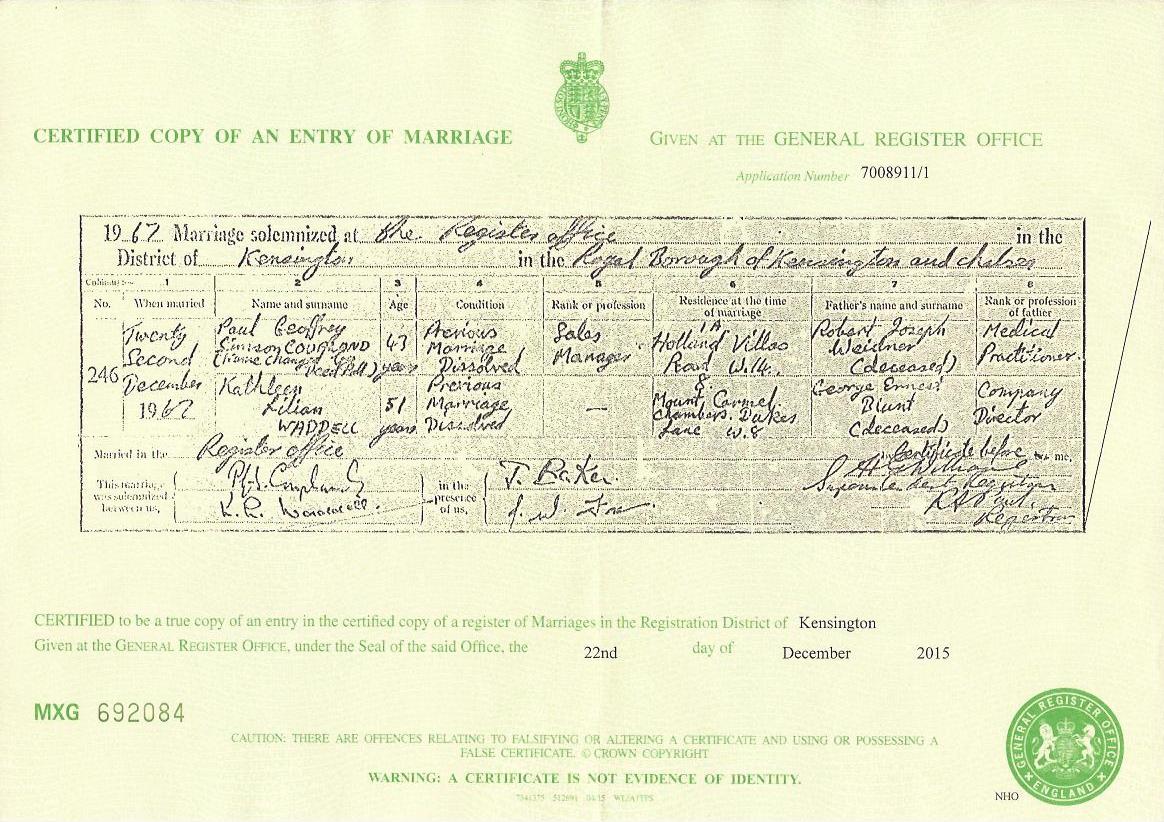 CERTIFIED COPY OF AN ENTRY OF MARRIAGE
GIVEN AT THE GENERAL REGISTER OFFICE
Application Number 7008911/1
1967 Marriage solemnized at the Register office in the
District of Kensington in the Royal Borough of Kensington and Chelsea
Columns:— 1 2 3 4 5 6 7 8
No. When married Name and surname Age Condition Rank or profession Residence at the time of marriage Father's name and surname Rank or profession of father
246
Twenty
Second
December
1967
Paul Geoffrey
Simson COUPLAND
(name changed by
Deed Poll)
43
years
Previous
Marriage
Dissolved
Sales
Manager
1A
Holland Villas
Road W.14.
Robert Joseph
Weidner
(deceased)
Medical
Practitioner.
Kathleen
Lilian
WADDELL
51
years
Previous
Marriage
Dissolved
—
8
Mount Carmel
Chambers. Dukes
Lane W.8
George Ernest
Blunt
(deceased)
Company
Director
Married in the Register office by Certificate before me,
This marriage
was solemnized
between us,
in the
presence
of us,
T. Baker.
Superintendent Registrar
Registrar
CERTIFIED to be a true copy of an entry in the certified copy of a register of Marriages in the Registration District of Kensington
Given at the GENERAL REGISTER OFFICE, under the Seal of the said Office, the 22nd day of December 2015
MXG 692084
CAUTION: THERE ARE OFFENCES RELATING TO FALSIFYING OR ALTERING A CERTIFICATE AND USING OR POSSESSING A
FALSE CERTIFICATE. © CROWN COPYRIGHT
WARNING: A CERTIFICATE IS NOT EVIDENCE OF IDENTITY.
GENERAL REGISTER OFFICE
ENGLAND
NHO